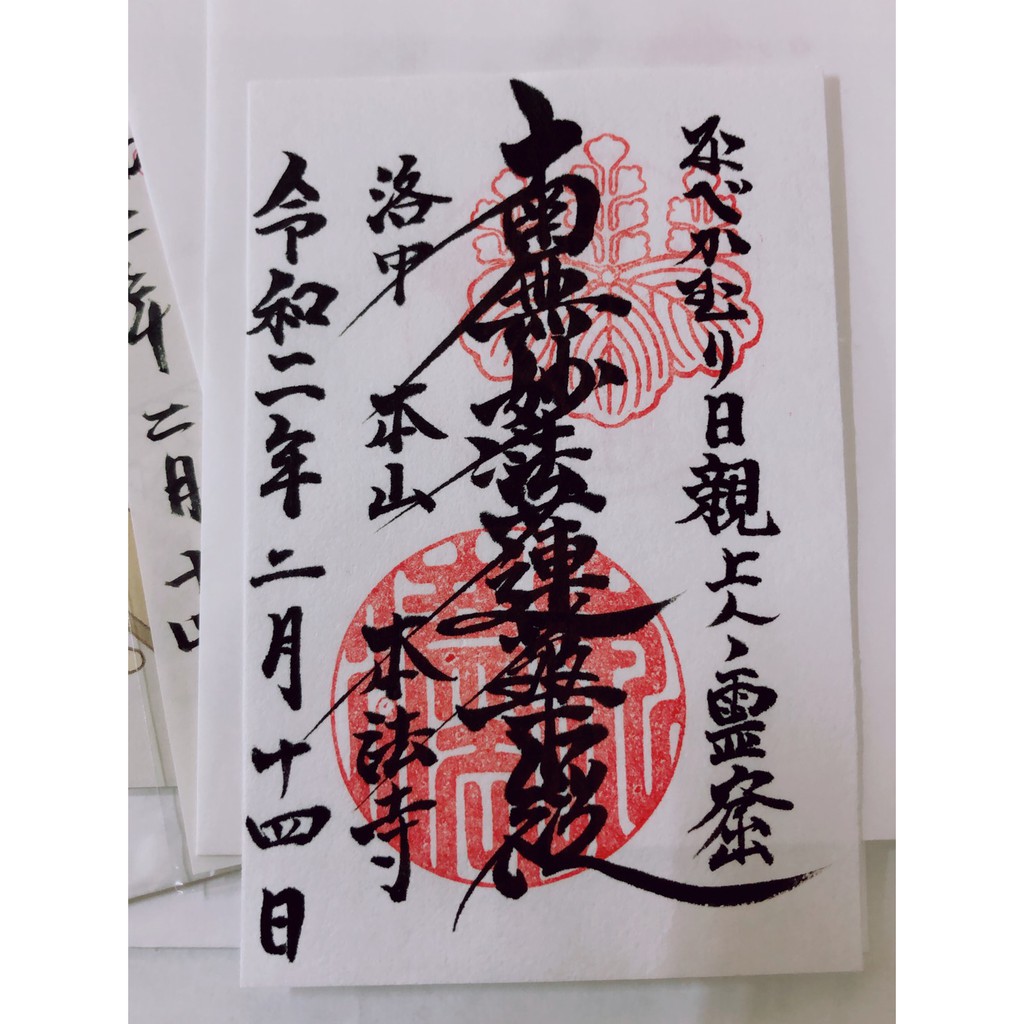 なべかむり日親上人之霊窟
南無妙法蓮華経
洛中 本山 本法寺
令和二年二月十四日
二月十四